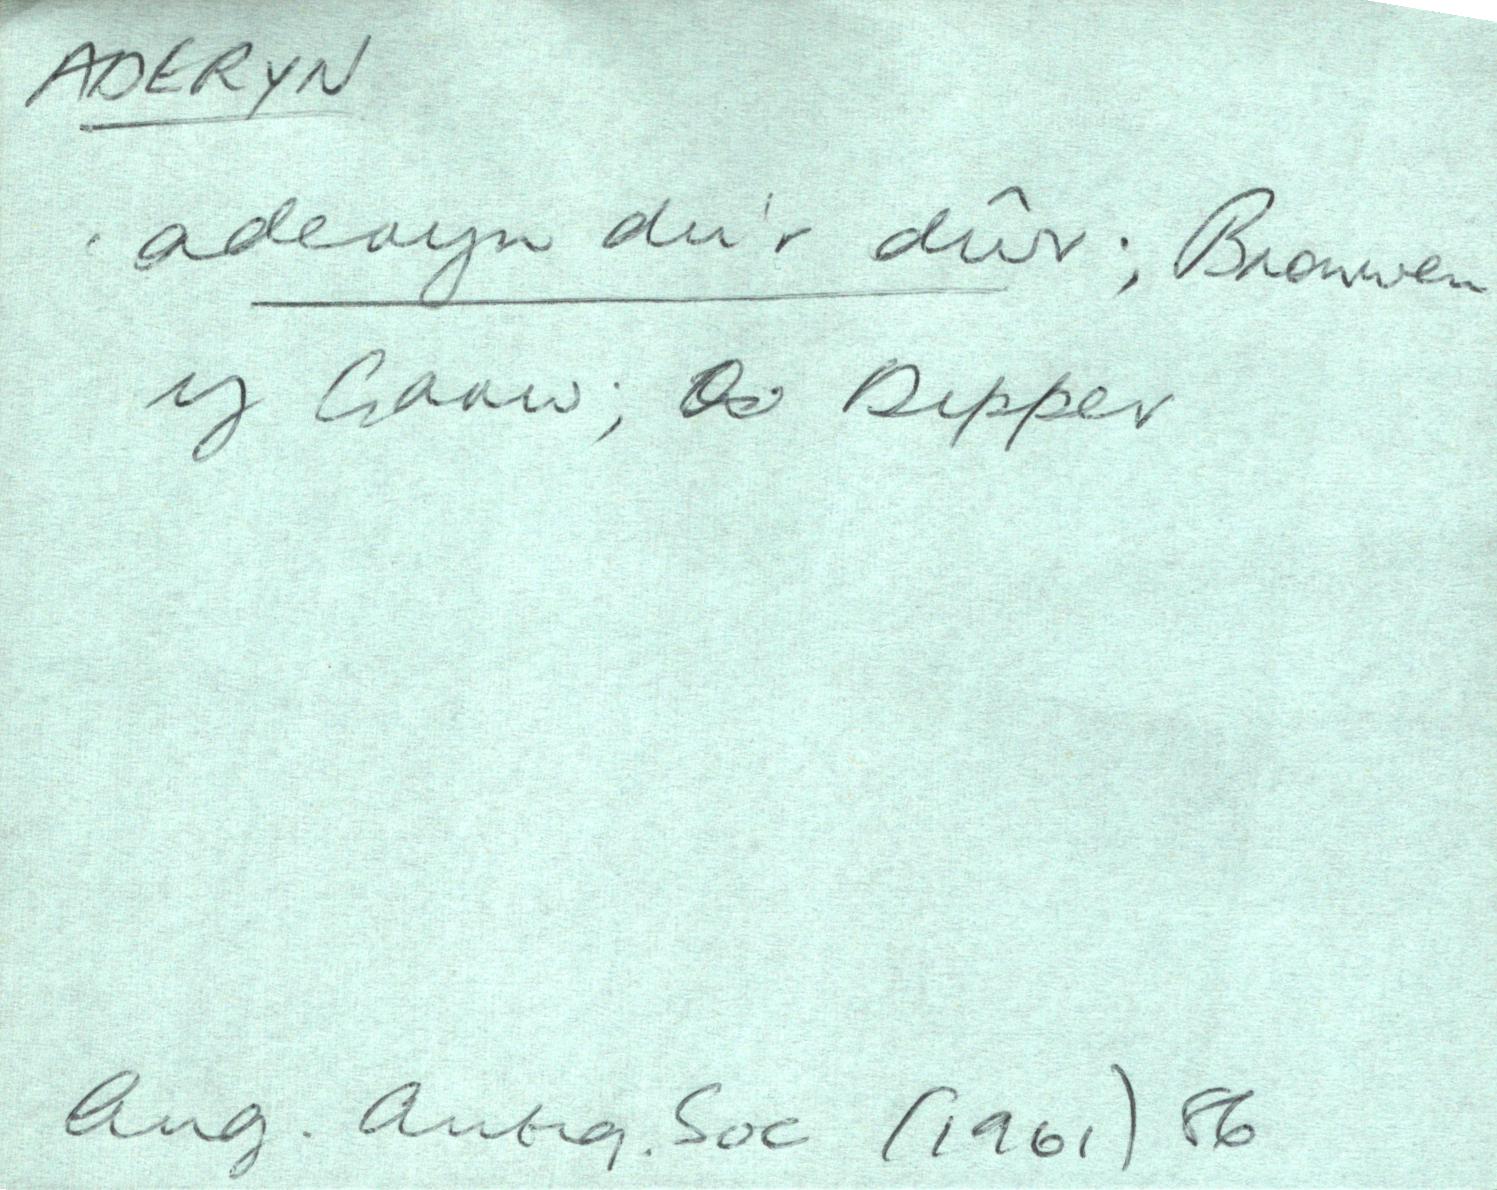 ADERYN
aderyn du'r dŵr; Bronwen
y Garw; Dipper
Ang. Antiq. Soc (1961) 86